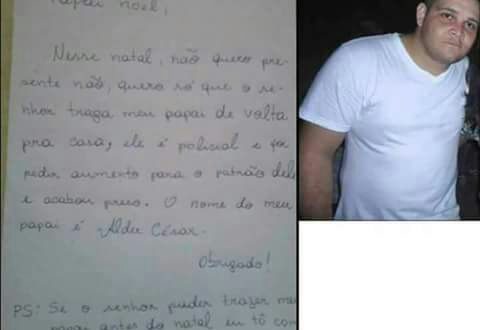 Papai Noel,
Nesse natal, não quero pre-
sente não, quero só que o se-
nhor traga meu papai de volta
pra casa, ele é policial e foi
pedir aumento para o patrão dele
e acabou preso. O nome do meu
papai é Aldir César.
Obrigado!
PS: Se o senhor puder trazer meu
papai antes do natal eu tô com